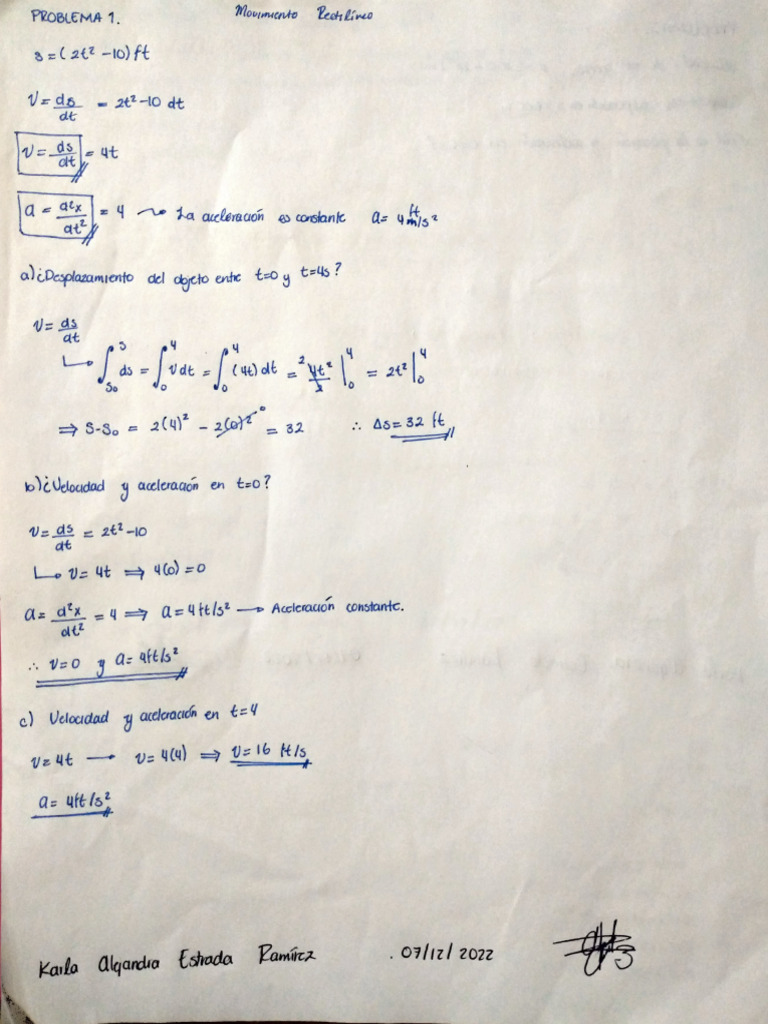 PROBLEMA 1. Movimiento Rectilíneo
s=(2t² -10)ft
V = ds/dt = 2t²-10 dt
v = ds/dt = 4t
a = d²x/dt² = 4 → La aceleración es constante a= 4 ft/s²
a) ¿Desplazamiento del objeto entre t=0 y t=4s?
V = ds/dt
∫_{S₀}^{S} ds = ∫_0^4 v dt = ∫_0^4 (4t) dt = 4t²/2 |_0^4 = 2t² |_0^4
⇒ S-S₀ = 2(4)² - 2(0)² = 32 ∴ Δs= 32 ft
b) ¿Velocidad y aceleración en t=0?
v= ds/dt = 2t²-10
↳ v= 4t ⇒ 4(0)=0
a= d²x/dt² = 4 ⇒ a= 4ft/s² → Aceleración constante.
∴ v=0 y a= 4ft/s²
c) Velocidad y aceleración en t=4
v= 4t → v= 4(4) ⇒ v= 16 ft/s
a= 4ft/s²
Karla Alejandra Estrada Ramírez . 07/12/2022